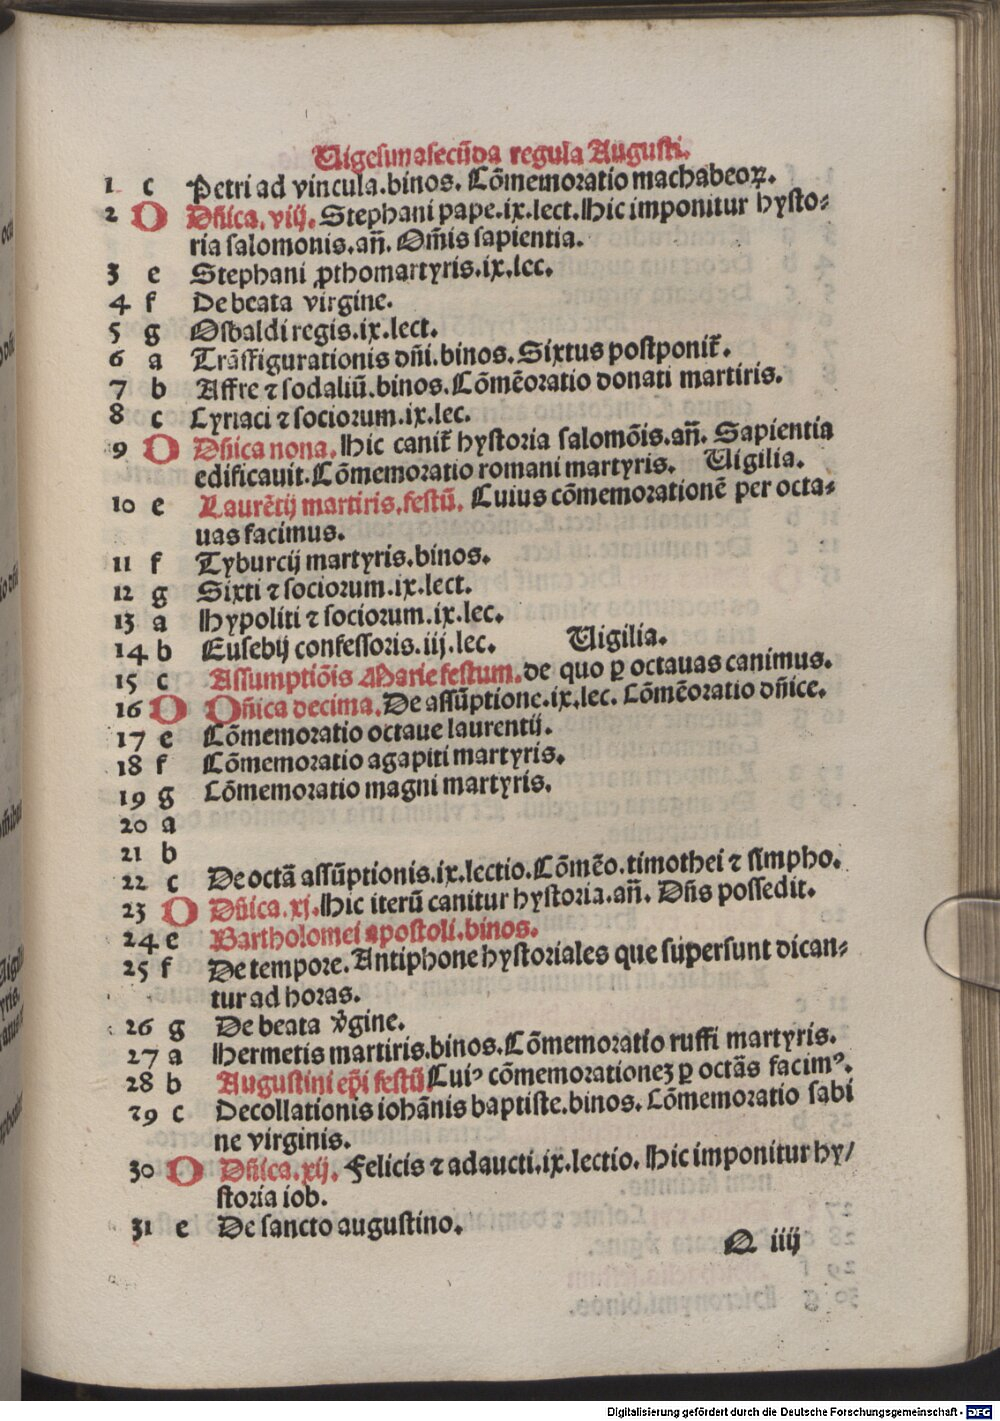 Uigesimasecūda regula Augusti.
1 c Petri ad vincula.binos. Cōmemoratio machabeoꝝ.
2 D Dn̄ica. viij. Stephani pape.ix.lect. Hic imponitur hysto-
ria salomonis.an̄. Om̄is sapientia.
3 e Stephani ꝓthomartyris.ix.lec.
4 f De beata virgine.
5 g Oswaldi regis.ix.lect.
6 a Trāsfigurationis dn̄i.binos. Sixtus postponit᷑.
7 b Affre ⁊ sodaliū.binos. Cōmēoratio donati martiris.
8 c Cyriaci ⁊ sociorum.ix.lec.
9 D Dn̄ica nona. Hic canit᷑ hystoria salomōis.an̄. Sapientia
edificauit. Cōmemoratio romani martyris. Uigilia.
10 e Laurētij martiris.festū. Cuius cōmemorationē per octa-
uas facimus.
11 f Tyburcij martyris.binos.
12 g Sixti ⁊ sociorum.ix.lect.
13 a Hypoliti ⁊ sociorum.ix.lec.
14 b Eusebij confessoris.iij.lec. Uigilia.
15 c Assumptiōis Marie festum. de quo ꝑ octauas canimus.
16 D Dn̄ica decima. De assūptione.ix.lec. Cōmēoratio dn̄ice.
17 e Cōmemoratio octaue laurentij.
18 f Cōmemoratio agapiti martyris.
19 g Cōmemoratio magni martyris.
20 a
21 b
22 c De octā assūptionis.ix.lectio. Cōmēo.timothei ⁊ simpho.
23 D Dn̄ica. xj. Hic iterū canitur hystoria.an̄. Dn̄s possedit.
24 e Bartholomei apostoli.binos.
25 f De tempore. Antiphone hystoriales que supersunt dican-
tur ad horas.
26 g De beata v̄gine.
27 a Hermetis martiris.binos. Cōmemoratio ruffi martyris.
28 b Augustini ep̄i festū Cuiꝰ cōmemorationeꝫ ꝑ octās facimꝰ.
29 c Decollationis iohānis baptiste.binos. Cōmemoratio sabi
ne virginis.
30 D Dn̄ica. xij. Felicis ⁊ adaucti.ix.lectio. Hic imponitur hy/
storia iob.
31 e De sancto augustino.
Q iiij
Digitalisierung gefördert durch die Deutsche Forschungsgemeinschaft - DFG